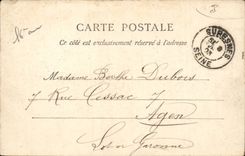 CARTE POSTALE
Ce côté est exclusivement réservé à l'adresse
SURESNES
SEINE
Madame Berthe Dubois
7 Rue Cessac 7
Agen
Lot et Garonne